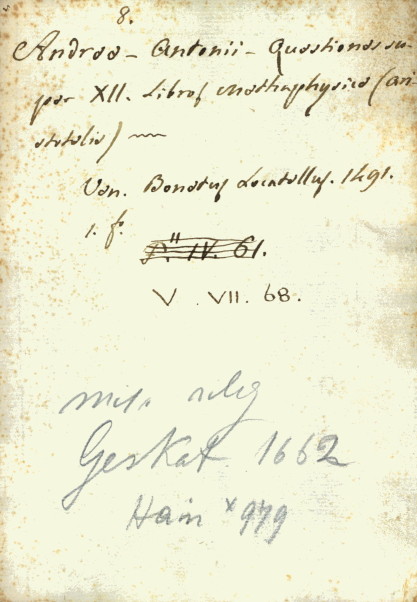 8.
Andreae - Antonii - Quaestiones su-
per XII. Libros Methaphysicae (Ari-
stotelis)
Ven. Bonetus Locatellus. 1491.
1. fo.
P. II IV. 61.
V. VII. 68.
GesKat 1662
Hain x 979